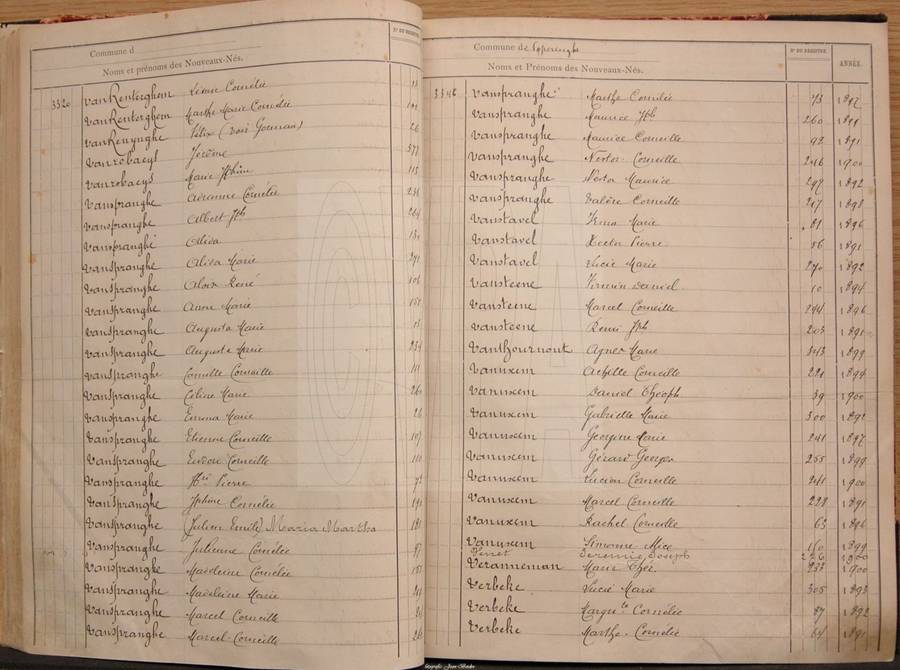 Commune d
Noms et prénoms des Nouveaux-Nés.
N° DU REGISTRE
3320 vanRenterghem Léonie Cornélie
vanRenterghem Marthe Marie Cornélie
vanRenynghe Félix
vanrobaeys Jérôme 377
vanrobaeys Marie 115
vanspranghe Adrienne Cornélie
vanspranghe Albert Jph 264
vanspranghe Alida
vanspranghe Alida Marie 271
vanspranghe Aloïs René 106
vanspranghe Anna Marie
vanspranghe Augusta Marie
vanspranghe Augusta Marie 234
vanspranghe Camille Corneille 111
vanspranghe Céline Marie 260
vanspranghe Emma Marie 26
vanspranghe Etienne Corneille 107
vanspranghe Corneille 110
vanspranghe Hri Pierre 72
vanspranghe Cornélie 191
vanspranghe (Julien Emile) Maria Martha 181
vanspranghe Julienne Cornélie 97
vanspranghe Madeleine Cornélie
vanspranghe Madeleine Marie
vanspranghe Marcel Corneille
vanspranghe Marcel Corneille
Commune de Poperinghe
Noms et Prénoms des Nouveaux-Nés.
N° DU REGISTRE
ANNÉE
3346 vanspranghe Marthe Cornélie 73 1892
vanspranghe Maurice Jph 260
vanspranghe Maurice Corneille 92 1891
vanspranghe Nestor Corneille 246 1900
vanspranghe Nestor Maurice 297 1892
vanspranghe Valère Corneille 217 1898
vanstavel Irma Marie 81 1896
vanstavel Hector Pierre 56 1891
vanstavel Lucie Marie 270 1892
vansteene Firmin Daniel 10 1894
vansteene Marcel Corneille 294 1896
vansteene Remi Jph 203 1891
vanthournout Agnes Marie 343 1899
vanuxem Achille Corneille 221 1894
vanuxem Daniel Théoph 39 1900
vanuxem Gabrielle Marie 300 1892
vanuxem Georgine Marie 241 1897
vanuxem Gérard Georges 255 1899
vanuxem Lucien Corneille 241 1900
vanuxem Marcel Corneille 228 1891
vanuxem Rachel Corneille 63 1896
vanuxem Simonne 150 1899
Jérémie Joseph 226 1900
veranneman Marie 233 1900
verbeke Lucie Marie 305 1893
verbeke Margute Cornélie 87 1892
verbeke Marthe Cornélie 64 1891